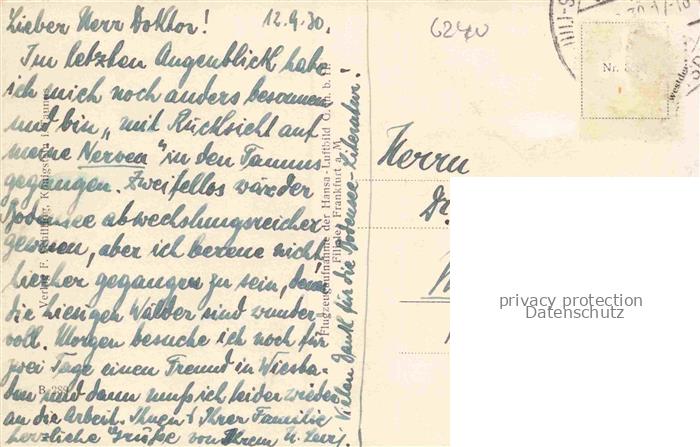 Lieber Herr Doktor! 12.9.30.
Im letzten Augenblick habe
ich mich noch anders besonnen
und bin „mit Rücksicht auf
meine Nerven" in den Taunus
gegangen. Zweifellos wär der
Bodensee abwechslungsreicher
gewesen, aber ich bereue nicht
hierher gegangen zu sein, denn
die hiesigen Wälder sind wunder-
voll. Morgen besuche ich noch für
zwei Tage einen Freund in Wiesba-
den und dann muß ich leider wieder
an die Arbeit. Ihnen & Ihrer Familie
herzliche Grüße von Ihrem
Vielen Dank für die Bodensee-Literatur!
Verlag F. Königstein i. Taunus
B. 289
Flugzeugaufnahme der Hansa-Luftbild G. m. b. H.
Filiale Frankfurt a. M.
6240
Nr.
westdoc
Herrn
Dr.
privacy protection
Datenschutz